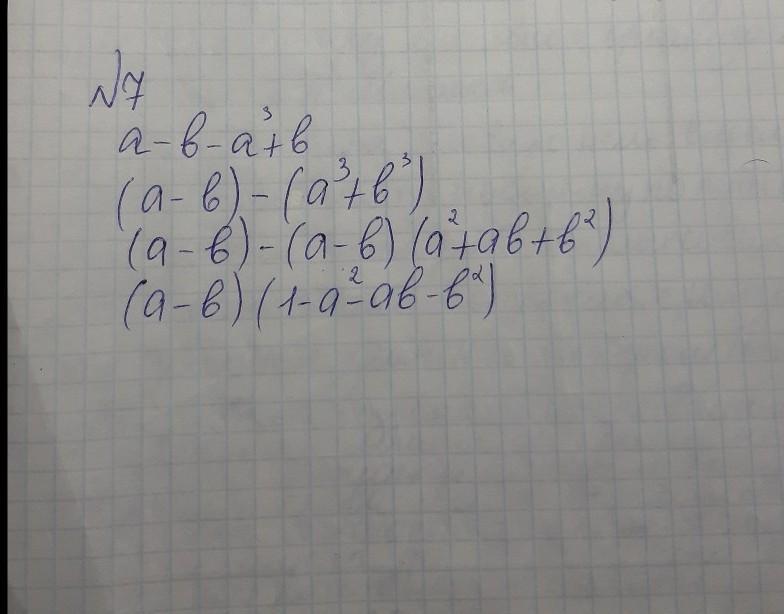 №7
a-в-a³+в
(a-в)-(a³+в³)
(a-в)-(a-в)(a²+aв+в²)
(a-в)(1-a²-aв-в²)